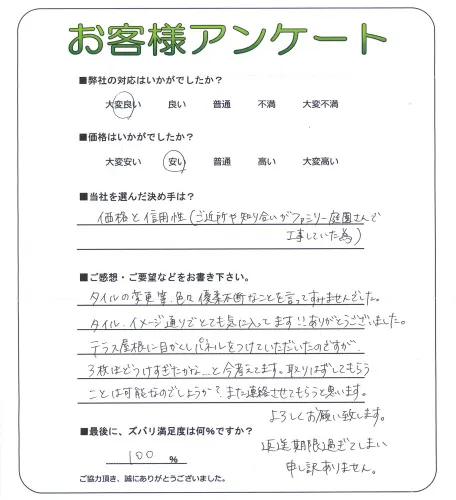 お客様アンケート
■弊社の対応はいかがでしたか?
大変良い 良い 普通 不満 大変不満
■価格はいかがでしたか?
大変安い 安い 普通 高い 大変高い
■当社を選んだ決め手は?
価格と信用性(ご近所や知り合いがファミリー庭園さんで
工事していた為)
■ご感想・ご要望などをお書き下さい。
タイルの変更等、色々優柔不断なことを言ってすみませんでした。
タイル、イメージ通りでとても気に入ってます!!ありがとうございました。
テラス屋根に目かくしパネルをつけていただいたのですが、
3枚はどつけすぎたかな…と今考えてます。取りはずしてもらう
ことは可能なのでしょうか?また連絡させてもらうと思います。
よろしくお願い致します。
■最後に、ズバリ満足度は何%ですか?
100 %
返送期限過ぎてしまい
申し訳ありません。
ご協力頂き、誠にありがとうございました。